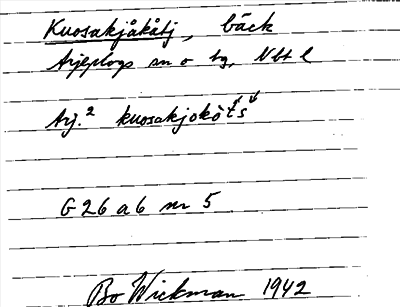 Kuosakjåkåtj, bäck
Arjeplogs sn o tg, Nbt l
Arj.² kuosakjokòt́š
G 26 a 6 nr 5
Bo Wickman 1942